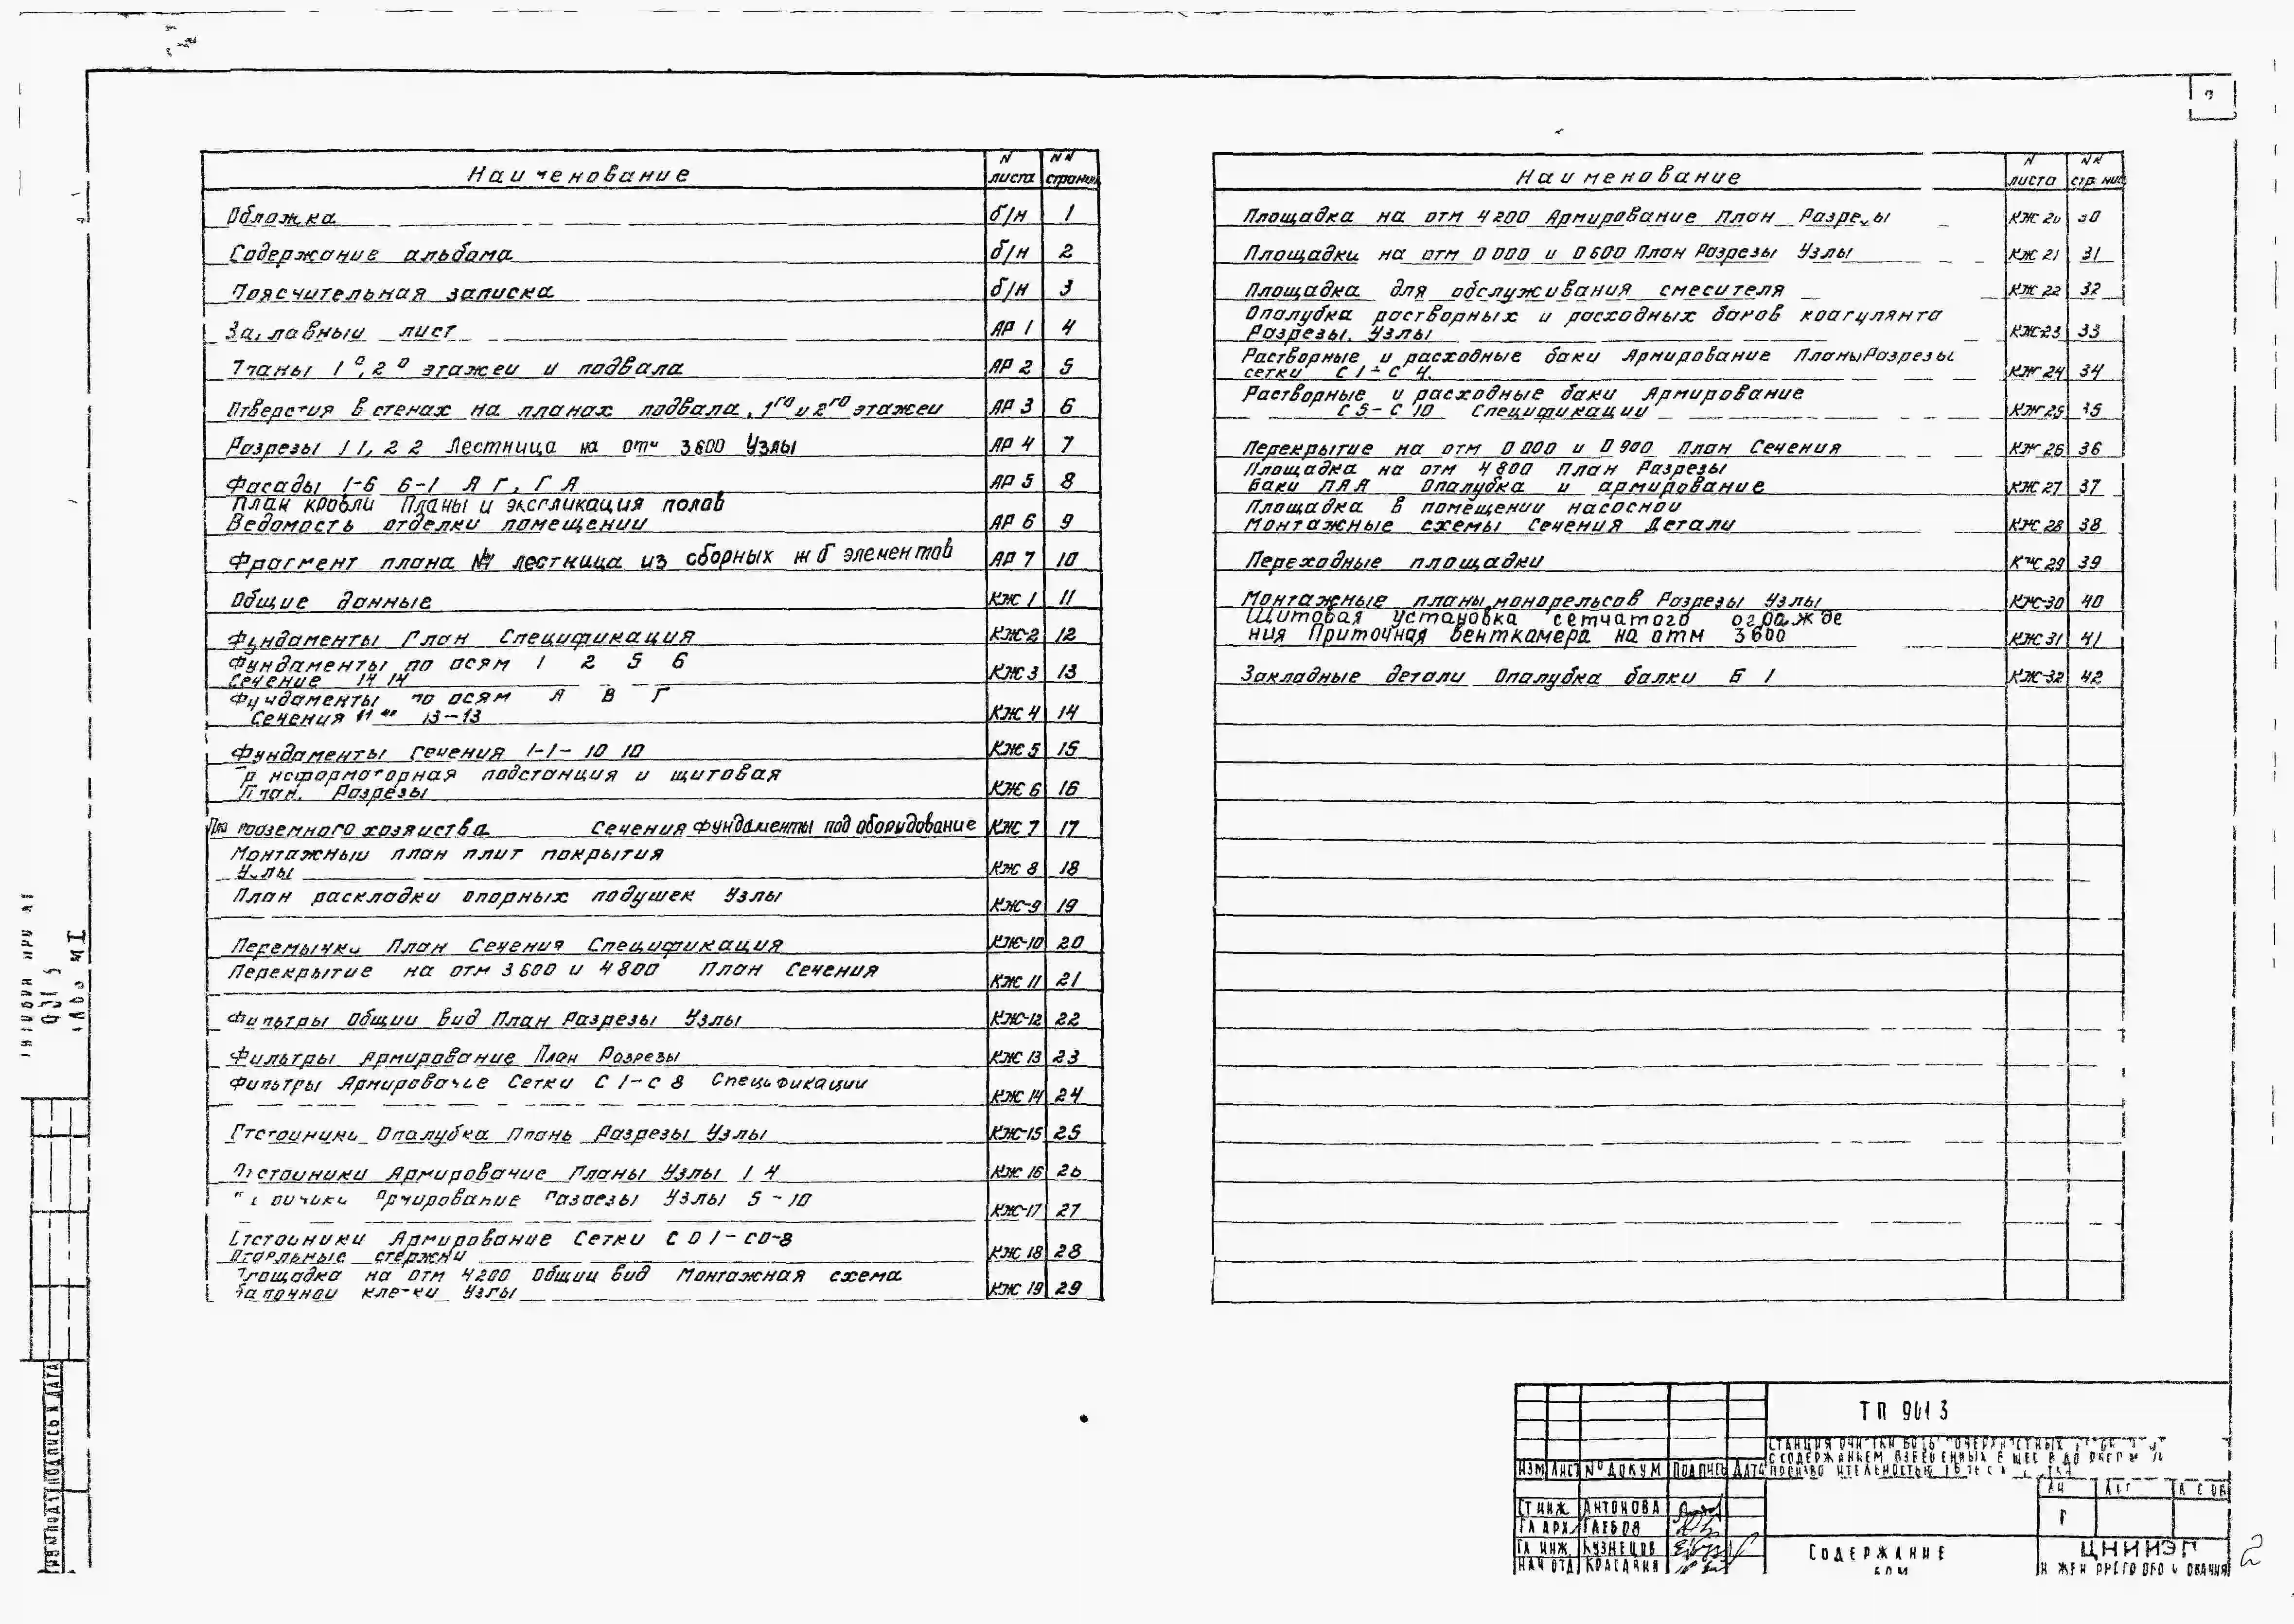 Наименование
N листа
NN страниц
Обложка б/н 1
Содержание альбома б/н 2
Пояснительная записка б/н 3
Заглавный лист АР 1 4
Планы 1º, 2º этажей и подвала АР 2 5
Отверстия в стенах на планах подвала, 1го и 2го этажей АР 3 6
Разрезы 1 1, 2 2 Лестница на отм 3600 Узлы АР 4 7
Фасады 1-6 6-1 А Г, Г А АР 5 8
План кровли Планы и экспликация полов
Ведомость отделки помещений АР 6 9
Фрагмент плана №1 лестница из сборных ж б элементов АР 7 10
Общие данные КЖ 1 11
Фундаменты План Спецификация КЖ-2 12
Фундаменты по осям 1 2 5 6
Сечение 14 14 КЖ 3 13
Фундаменты по осям А В Г
Сечения 11 13-13 КЖ 4 14
Фундаменты Сечения 1-1- 10 10 КЖ 5 15
Трансформаторная подстанция и щитовая
План. Разрезы КЖ 6 16
План подземного хозяйства Сечения Фундаменты под оборудование КЖ 7 17
Монтажный план плит покрытия
Узлы КЖ 8 18
План раскладки опорных подушек Узлы КЖ-9 19
Перемычки План Сечения Спецификация КЖ-10 20
Перекрытие на отм 3600 и 4800 План Сечения КЖ 11 21
Фильтры Общий вид План Разрезы Узлы КЖ-12 22
Фильтры Армирование План Разрезы КЖ 13 23
Фильтры Армирование Сетки С 1-С 8 Спецификации КЖ 14 24
Отстойники Опалубка Планы Разрезы Узлы КЖ-15 25
Отстойники Армирование Планы Узлы 1 4 КЖ 16 26
Армирование Разрезы Узлы 5-10 КЖ-17 27
Отстойники Армирование Сетки С О 1-СО-8
Отдельные стержни КЖ 18 28
Площадка на отм 4200 Общий вид Монтажная схема
балочной клетки Узлы КЖ 19 29
Наименование
N листа
NN страниц
Площадка на отм 4200 Армирование План Разрезы КЖ 20 30
Площадки на отм 0 000 и 0600 План Разрезы Узлы КЖ 21 31
Площадка для обслуживания смесителя КЖ 22 32
Опалубка растворных и расходных баков коагулянта
Разрезы. Узлы КЖ-23 33
Растворные и расходные баки Армирование Планы Разрезы
сетки С 1-С 4. КЖ 24 34
Растворные и расходные баки Армирование
С 5-С 10 Спецификации КЖ 25 35
Перекрытие на отм 0 000 и 0 900 План Сечения КЖ 26 36
Площадка на отм 4800 План Разрезы
Баки ПАА Опалубка и армирование КЖ 27 37
Площадка в помещении насосной
Монтажные схемы Сечения Детали КЖ 28 38
Переходные площадки КЖ 29 39
Монтажные планы монорельсов Разрезы Узлы КЖ-30 40
Щитовая установка сетчатого огражде
ния Приточная венткамера на отм 3600 КЖ 31 41
Закладные детали Опалубка балки Б 1 КЖ-32 42
ТП 901 3
СТАНЦИЯ ОЧИСТКИ ВОДЫ ПОВЕРХНОСТНЫХ
С СОДЕРЖАНИЕМ ВЗВЕШЕННЫХ
ИЗМ ЛИСТ № ДОКУМ ПОДПИСЬ ДАТА
СТ ИНЖ. АНТОНОВА
ГЛ АРХ.
ГЛ ИНЖ. КУЗНЕЦОВ
НАЧ ОТД КРАСАВИН
СОДЕРЖАНИЕ
ЦНИИЭП
ИНЖЕНЕРНОГО ОБОРУДОВАНИЯ
2
ИНВ № ПОДЛ ПОДПИСЬ И ДАТА